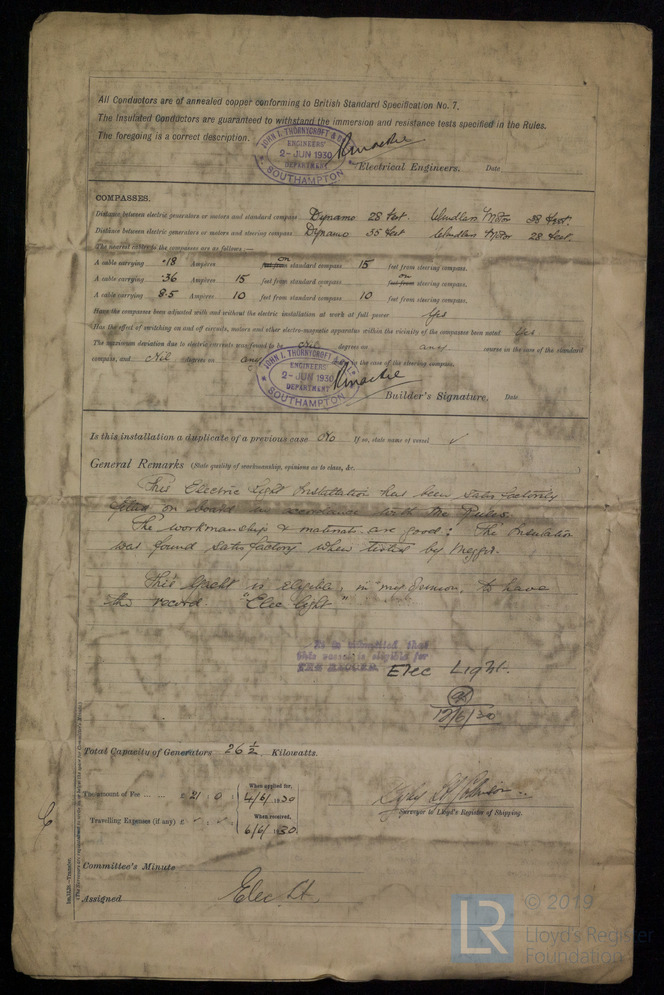 All Conductors are of annealed copper conforming to British Standard Specification No. 7.
The Insulated Conductors are guaranteed to withstand the immersion and resistance tests specified in the Rules.
The foregoing is a correct description.
JOHN I. THORNYCROFT & Co
ENGINEERS'
2 - JUN 1930
DEPARTMENT
SOUTHAMPTON
Electrical Engineers. Date
COMPASSES.
Distance between electric generators or motors and standard compass Dynamo 28 feet. Windlass Motor 38 feet.
Distance between electric generators or motors and steering compass Dynamo 35 feet Windlass Motor 28 feet.
The nearest cables to the compasses are as follows:—
A cable carrying .18 Amperes on standard compass 15 feet from steering compass.
A cable carrying .36 Amperes 15 feet from standard compass on steering compass.
A cable carrying 8.5 Amperes 10 feet from standard compass 10 feet from steering compass.
Have the compasses been adjusted with and without the electric installation at work at full power Yes
Has the effect of switching on and off circuits, motors and other electro-magnetic apparatus within the vicinity of the compasses been noted Yes
The maximum deviation due to electric currents was found to be Nil degrees on any course in the case of the standard
compass, and Nil degrees on any course in the case of the steering compass.
JOHN I. THORNYCROFT & Co
ENGINEERS'
2 - JUN 1930
DEPARTMENT
SOUTHAMPTON
Builder's Signature. Date
Is this installation a duplicate of a previous case No If so, state name of vessel ✓
General Remarks (State quality of workmanship, opinions as to class, &c.
This Electric Light Installation has been satisfactorily
fitted on board in accordance with the Rules.
The workmanship & materials are good: The Insulation
was found satisfactory when tested by Megger.
This Yacht is eligible, in my opinion, to have
the record. "Elec light"
It is submitted that
this vessel is eligible for
THE RECORD. Elec Light.
12/6/30
Total Capacity of Generators 26 ½ Kilowatts.
The amount of Fee ... ... £ 21 : 0 : When applied for, 4/6/1930
Travelling Expenses (if any) £ ✓ : ✓ : When received, 6/6/1930
Surveyor to Lloyd's Register of Shipping.
Committee's Minute
Assigned Elec. Lt.
© 2019
LR
Lloyd's Register
Foundation